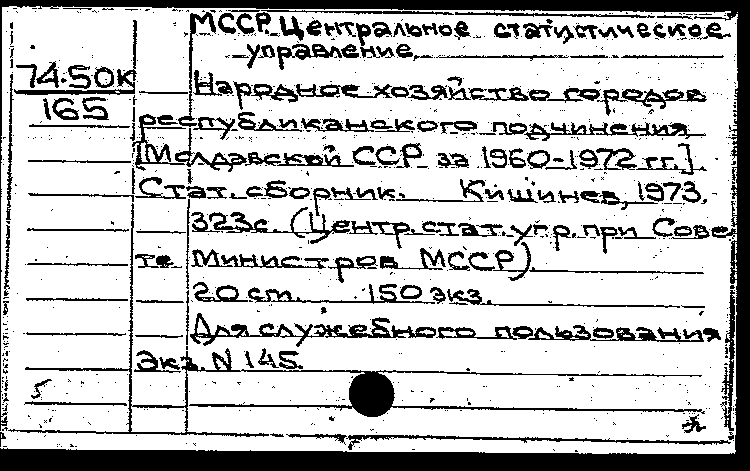 МССР. Центральное статистическое
управление.
74-50к
165
Народное хозяйство городов
республиканского подчинения
[Молдавской ССР за 1960-1972 гг.].
Стат. сборник. Кишинев, 1973.
323с. (Центр. стат. упр. при Сове-
те Министров МССР).
20 cm. 150 экз.
Для служебного пользования
Экз. N 145.
5